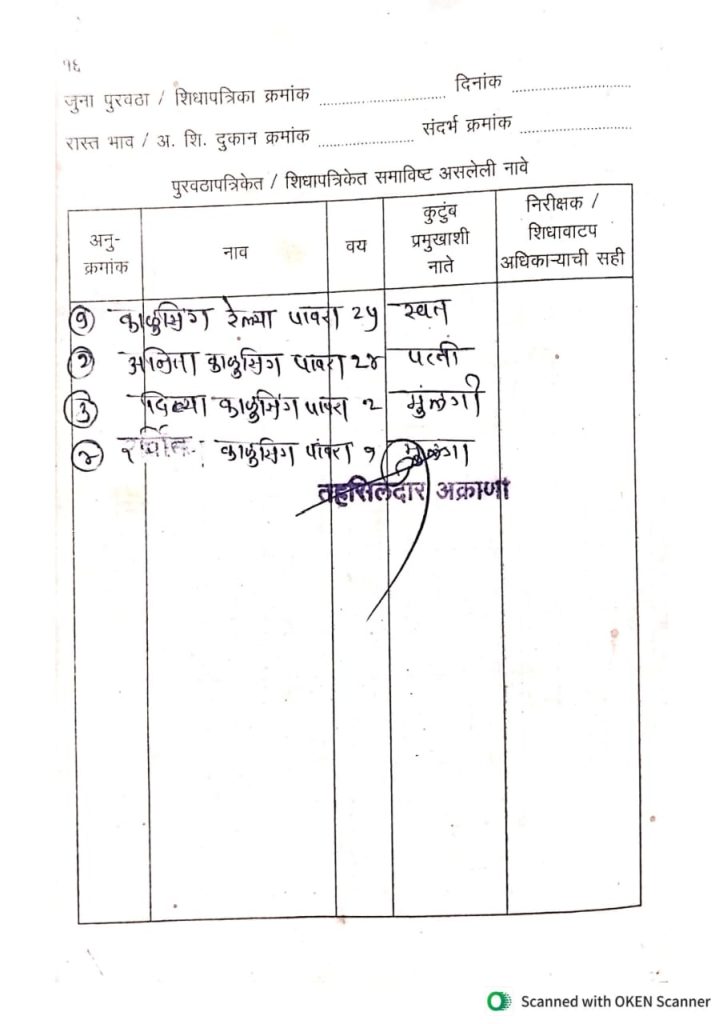 १६
जुना पुरवठा / शिधापत्रिका क्रमांक ........................ दिनांक ........................
रास्त भाव / अ. शि. दुकान क्रमांक .................. संदर्भ क्रमांक ........................
पुरवठापत्रिकेत / शिधापत्रिकेत समाविष्ट असलेली नावे
अनु-क्रमांक नाव वय कुटुंब प्रमुखाशी नाते निरीक्षक / शिधावाटप अधिकाऱ्याची सही
१ काळुसिंग रेल्या पावरा २५ स्वत
२ अनिता काळुसिंग पावरा २४ पत्नी
३ काळुसिंग पावरा २ मुलगी
४ काळुसिंग पावरा १ मुलगा
तहसिलदार अक्राणी
Scanned with OKEN Scanner